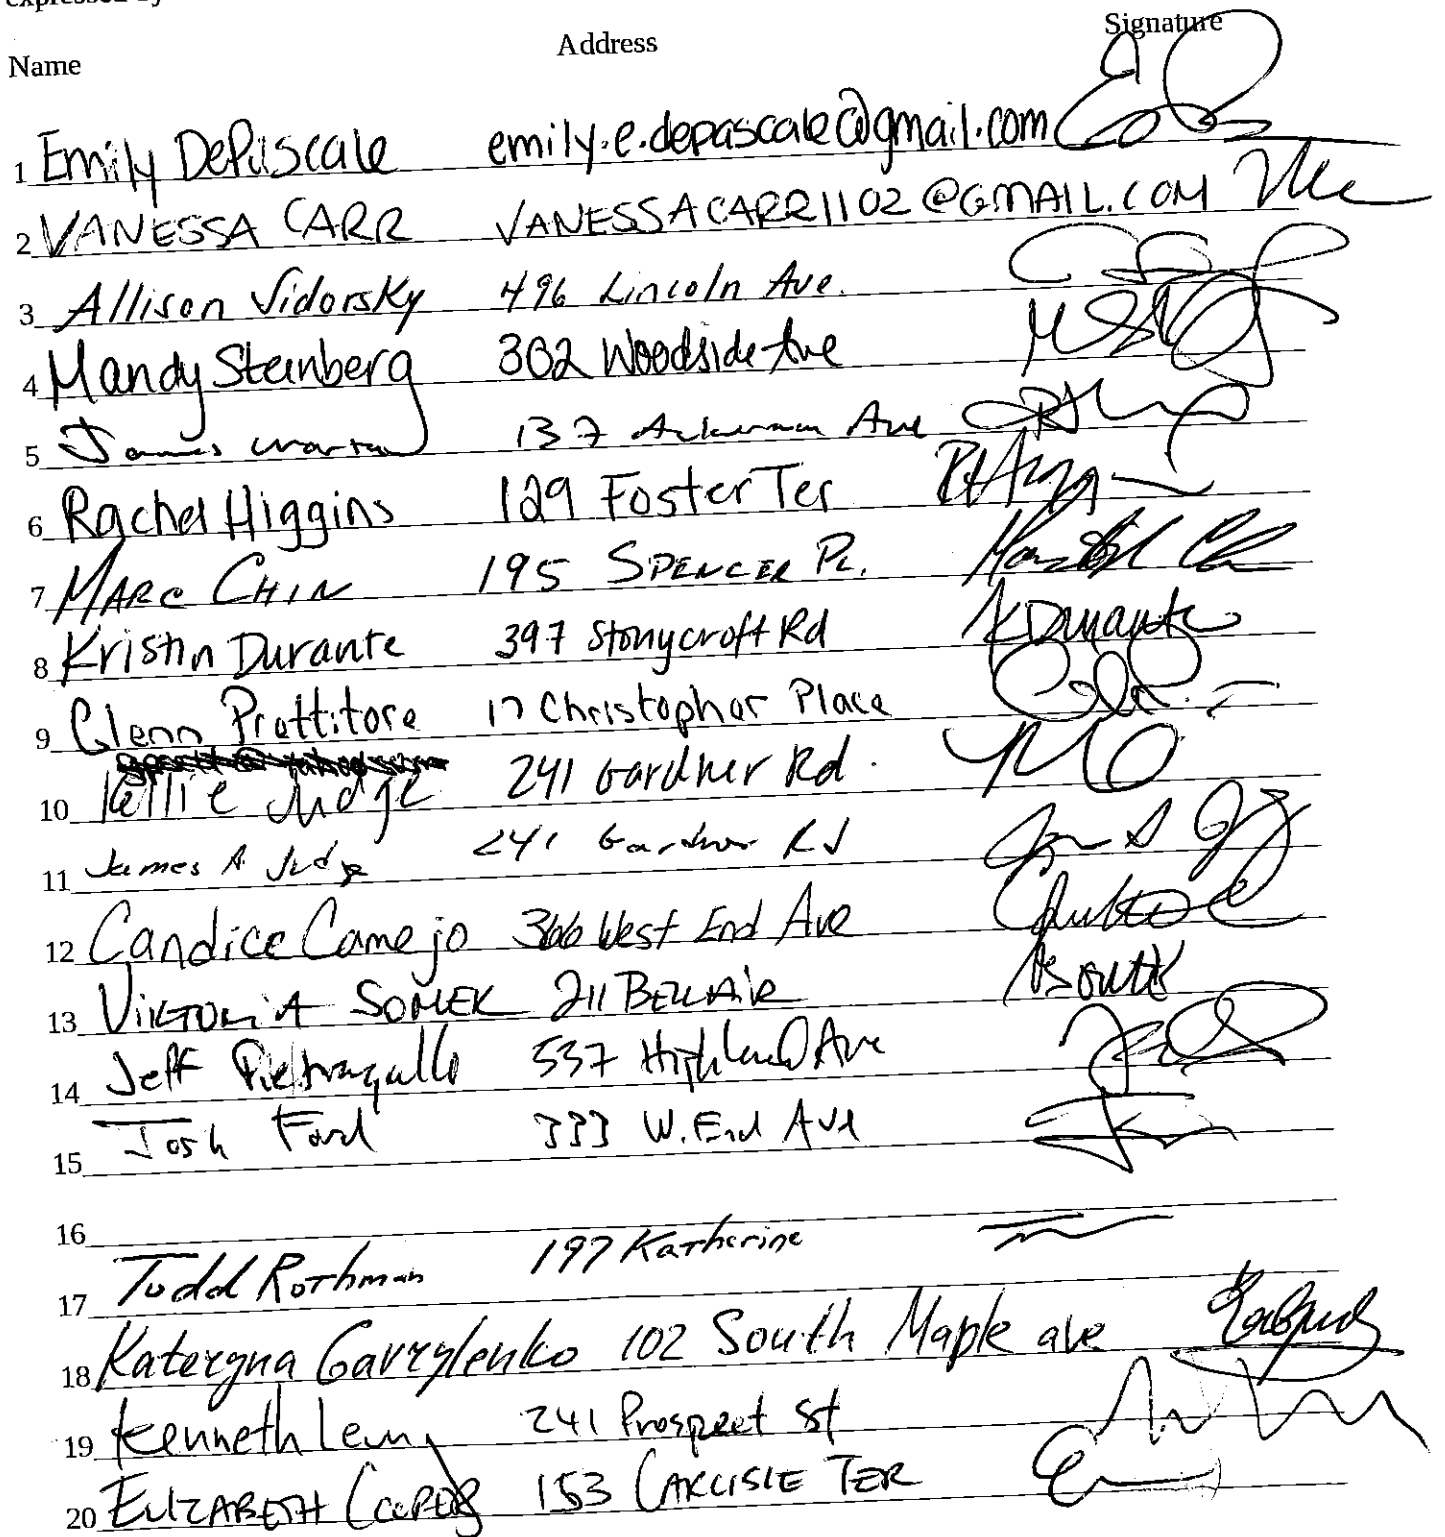 expressed by
Name Address Signature
1 Emily DePascale emily.e.depascale@gmail.com
2 VANESSA CARR VANESSACARR1102@GMAIL.COM
3 Allison Vidorsky 496 Lincoln Ave.
4 Mandy Steinberg 302 Woodside Ave
5 James 137 Ackerman Ave
6 Rachel Higgins 129 Foster Ter RHigg
7 MARC CHIN 195 SPENCER PL.
8 Kristin Durante 397 Stonycroft Rd KDurante
9 Glenn Prattitore 17 Christopher Place
10 Kellie Judge 241 Gardner Rd.
11 James A Judge 241 Gardner Rd
12 Candice Camejo 366 West End Ave
13 VIKTORIA SOMEK 211 BELLAIR
14 Jeff Pietragallo 537 Highland Ave
15 Josh Ford 333 W. End Ave
16
17 Todd Rothman 197 Katherine
18 Kateryna Gavrylenko 102 South Maple ave
19 Kenneth Leung 241 Prospect St
20 ELIZABETH COOPER 153 CARLISLE TER